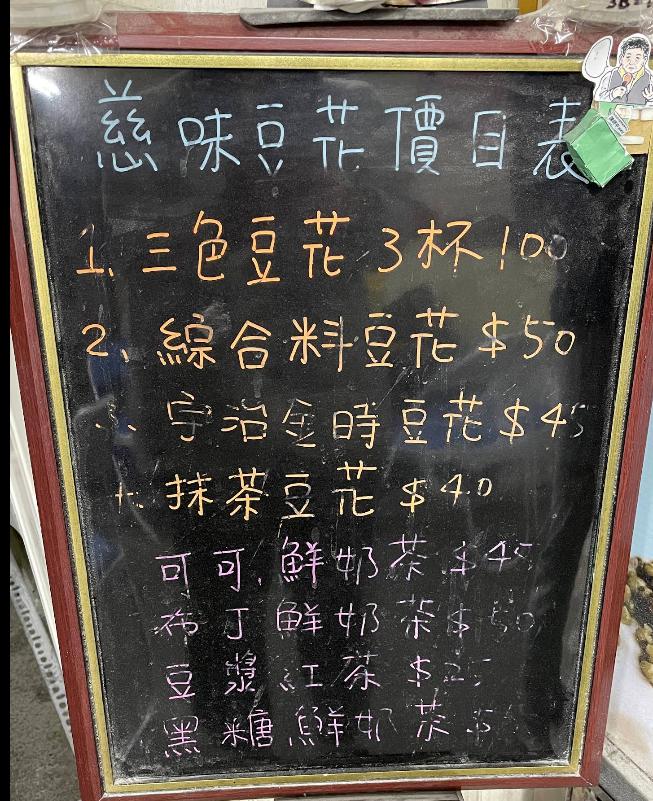 慈味豆花價目表
1. 三色豆花 3杯100
2. 綜合料豆花 $50
宇治金時豆花 $45
抹茶豆花 $40
可可.鮮奶茶 $45
布丁鮮奶茶 $50
豆漿紅茶 $25
黑糖鮮奶茶 $